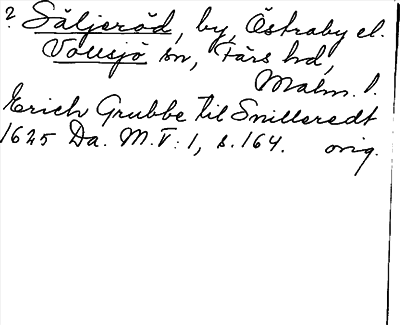 ? Säljeröd, by, Östraby el.
Vollsjö sn, Färs hd,
Malm. l.
Erich Grubbe til Snilleredt
1625 Da. M. V: 1, s. 164. orig.